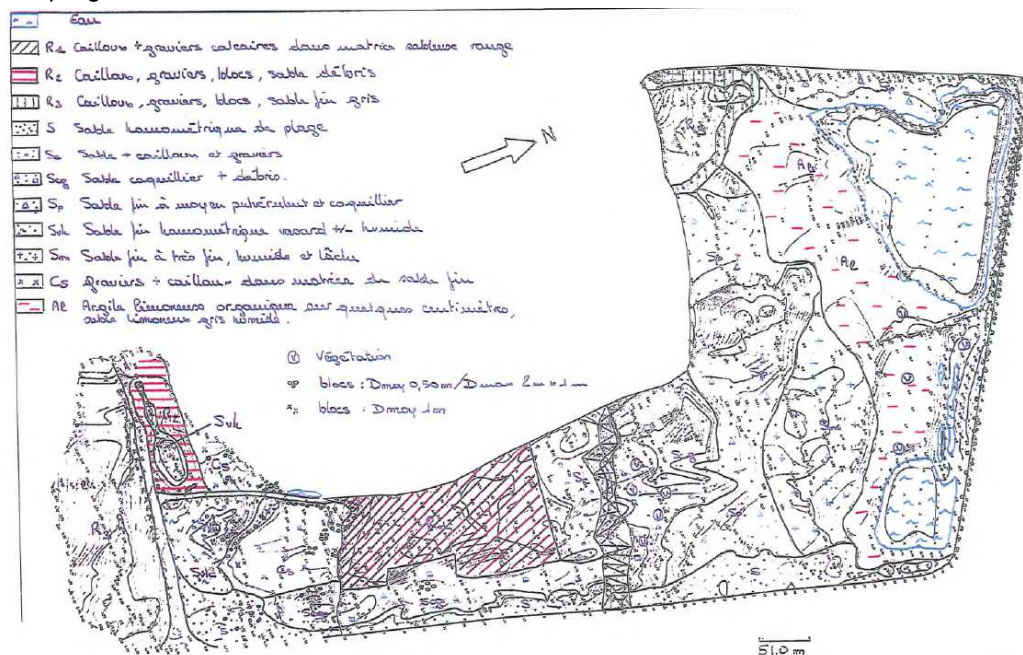 Eau
R1 Cailloux + graviers calcaires dans matrice sableuse rouge
R2 Cailloux, graviers, blocs, sable débris
R3 Cailloux, graviers, blocs, sable fin gris
S Sable homométrique de plage
Sable + cailloux et graviers
Scg Sable coquillier + débris.
Sp Sable fin à moyen pulvérulent et coquillier
Svh Sable fin homométrique vasard +/- humide
Sm Sable fin à très fin, humide et lâche
Cs graviers + cailloux dans matrice de sable fin
Al Argile limoneuse organique sur quelques centimètres,
sable limoneux gris humide.
V Végétation
blocs : Dmoy 0,50m/Dmax 2m x 1m
blocs : Dmoy 1m
N
Al
Al
Svh
Cs
Cs
S
S
51.0 m